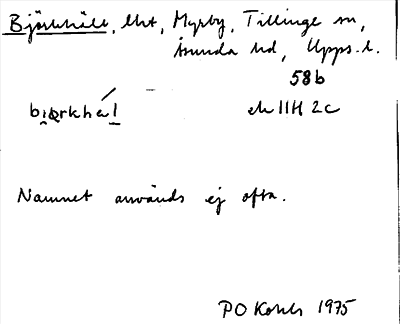 Björkhäll, lht, Myrby, Tillinge sn,
Åsunda hd, Upps. l.
58 b
ek 11H 2c
Namnet används ej ofta.
PO 1975